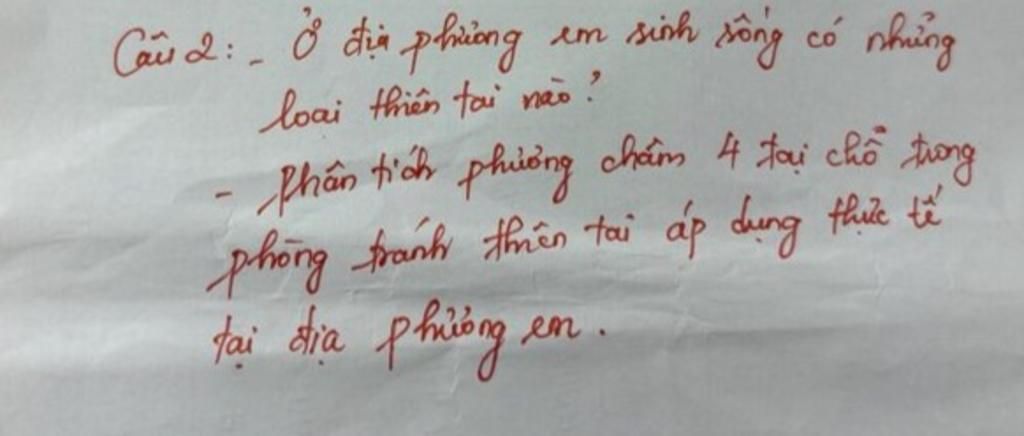 Câu 2: - Ở địa phương em sinh sống có những
loại thiên tai nào?
- Phân tích phương châm 4 tại chỗ trong
phòng tránh thiên tai áp dụng thực tế
tại địa phương em.